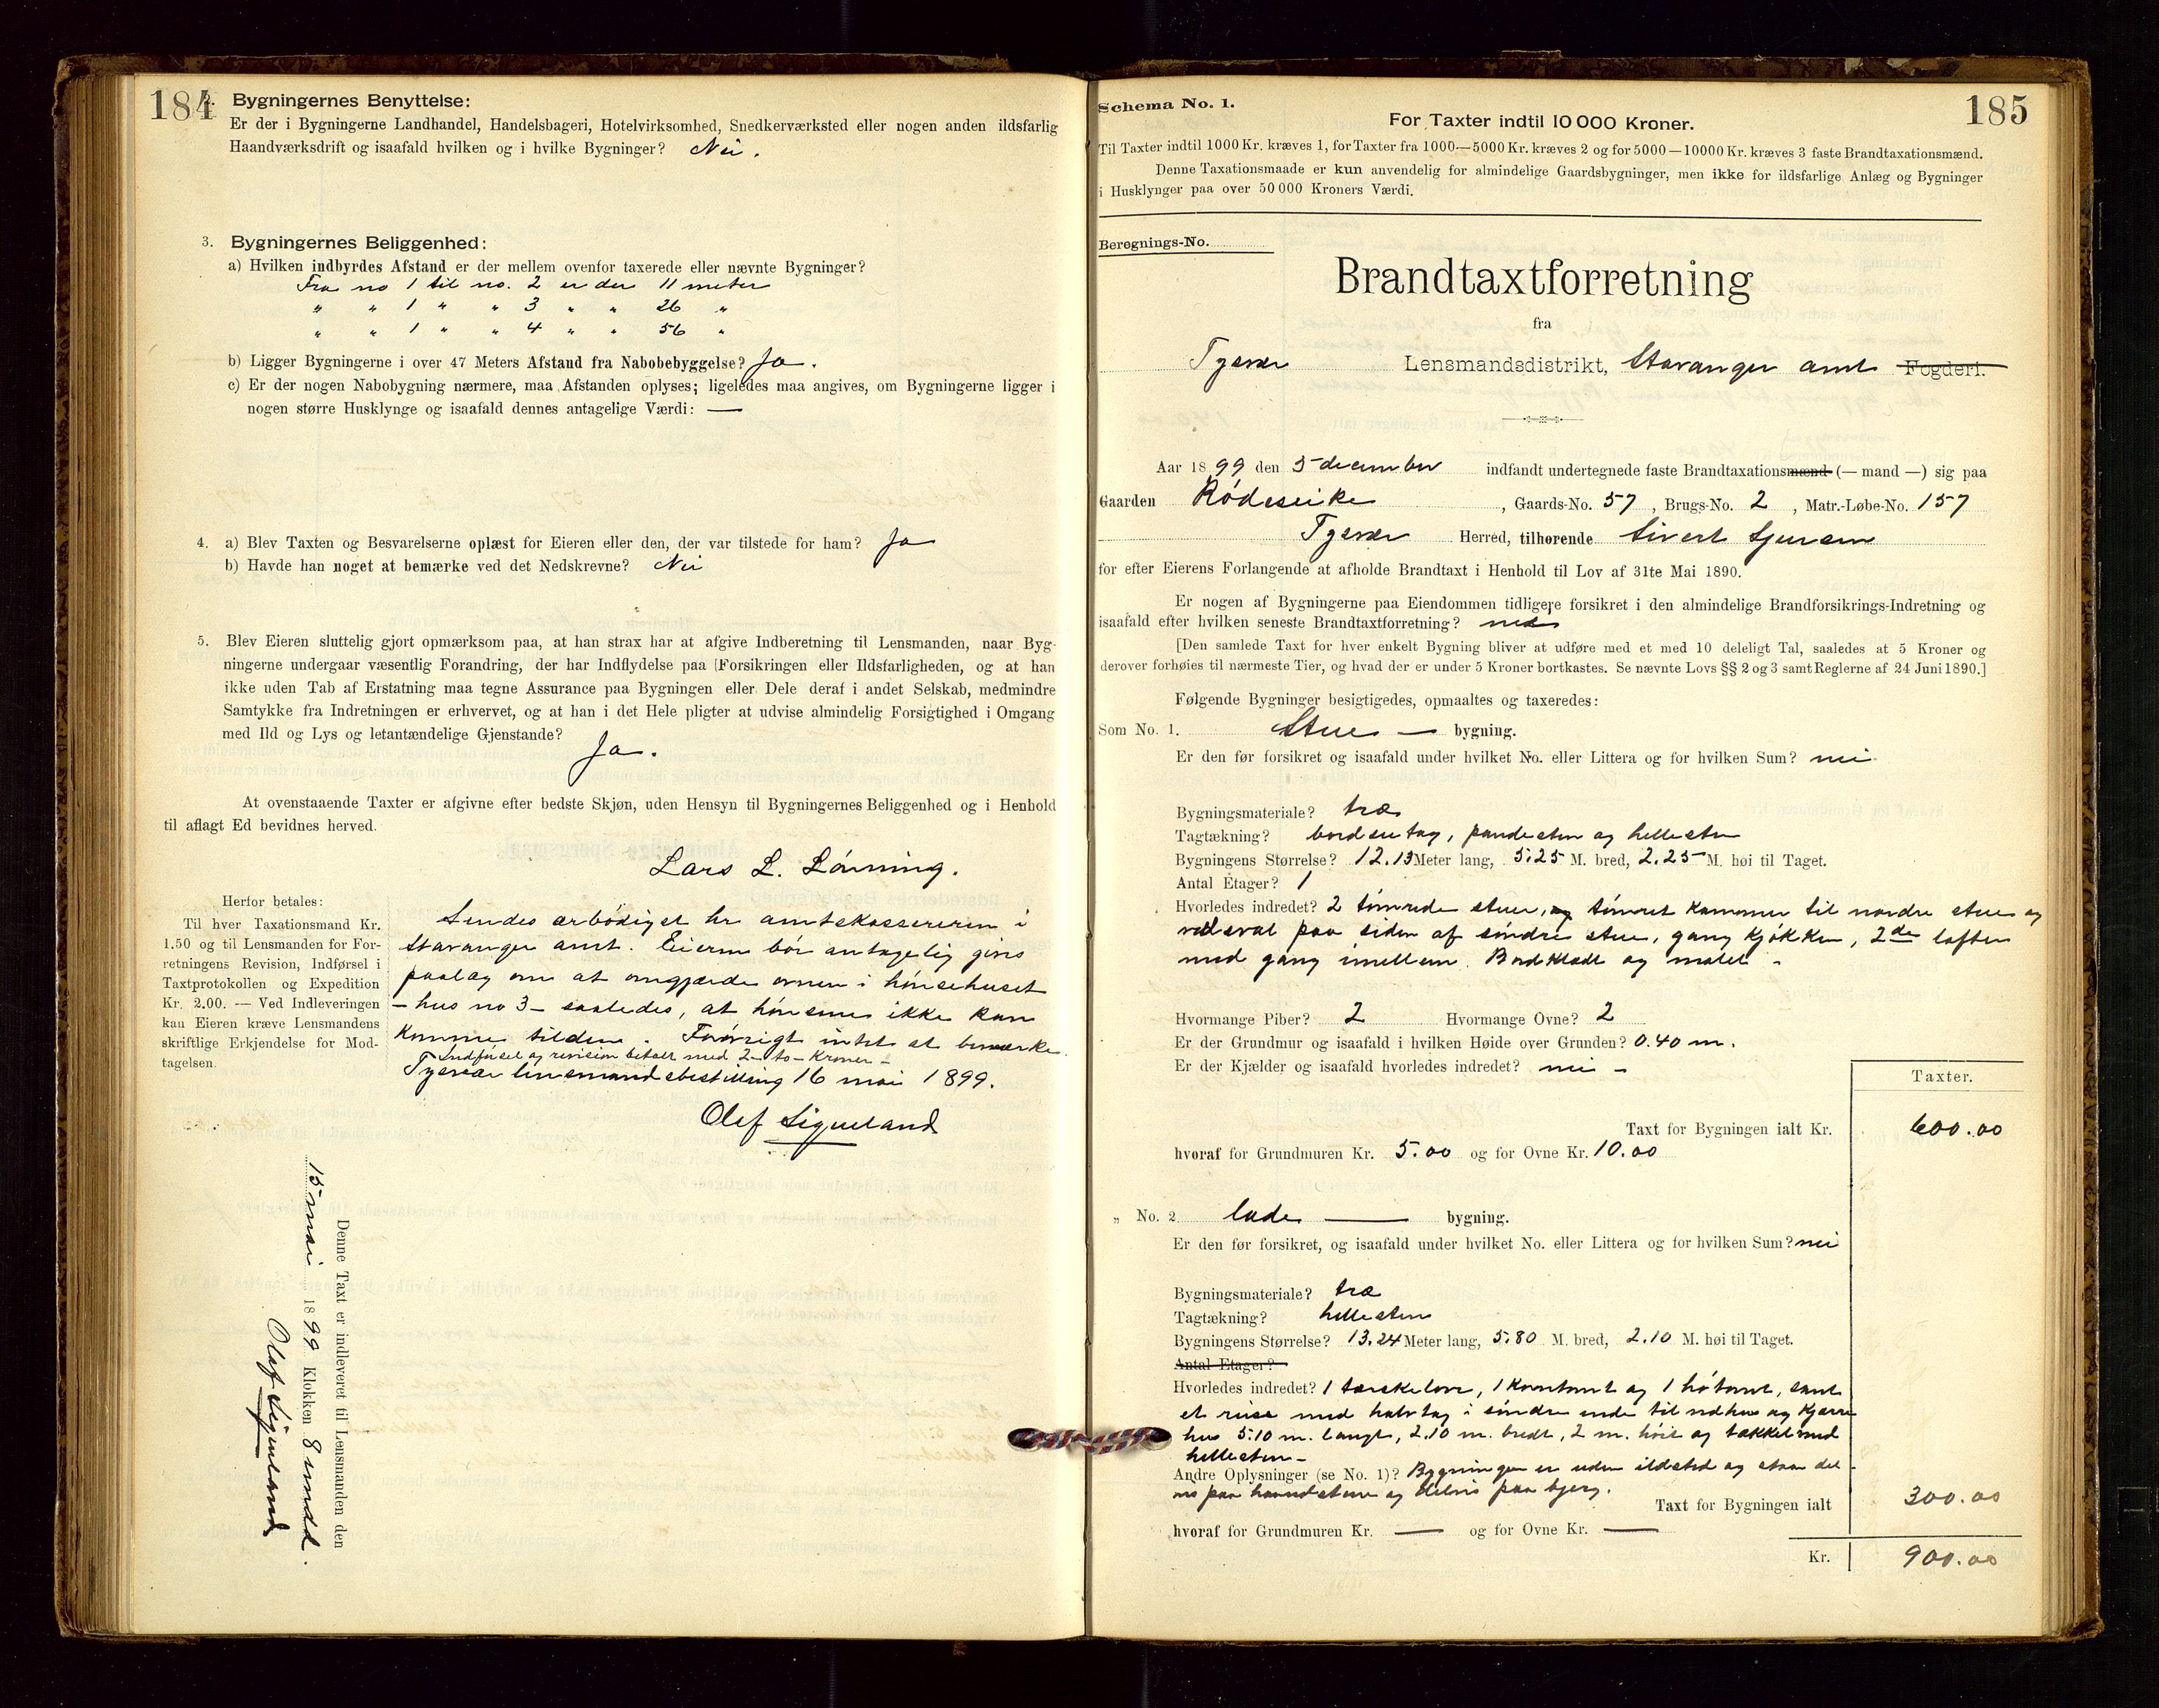 184
2. Bygningernes Benyttelse:
Er der i Bygningerne Landhandel, Handelsbageri, Hotelvirksomhed, Snedkerværksted eller nogen anden ildsfarlig
Haandværksdrift og isaafald hvilken og i hvilke Bygninger? Nei.
3. Bygningernes Beliggenhed:
a) Hvilken indbyrdes Afstand er der mellem ovenfor taxerede eller nævnte Bygninger?
Fra no 1 til no. 2 er der 11 meter
" " 1 " " 3 " " 26 "
" " 1 " " 4 " " 56 "
b) Ligger Bygningerne i over 47 Meters Afstand fra Nabobebyggelse? Ja.
c) Er der nogen Nabobygning nærmere, maa Afstanden oplyses; ligeledes maa angives, om Bygningerne ligger i
nogen større Husklynge og isaafald dennes antagelige Værdi: —
4. a) Blev Taxten og Besvarelserne oplæst for Eieren eller den, der var tilstede for ham? Ja
b) Havde han noget at bemærke ved det Nedskrevne? Nei
5. Blev Eieren sluttelig gjort opmærksom paa, at han strax har at afgive Indberetning til Lensmanden, naar Byg-
ningerne undergaar væsentlig Forandring, der har Indflydelse paa Forsikringen eller Ildsfarligheden, og at han
ikke uden Tab af Erstatning maa tegne Assurance paa Bygningen eller Dele deraf i andet Selskab, medmindre
Samtykke fra Indretningen er erhvervet, og at han i det Hele pligter at udvise almindelig Forsigtighed i Omgang
med Ild og Lys og letantændelige Gjenstande?
Ja.
At ovenstaaende Taxter er afgivne efter bedste Skjøn, uden Hensyn til Bygningernes Beliggenhed og i Henhold
til aflagt Ed bevidnes herved.
Lars L. Lövning.
Herfor betales:
Til hver Taxationsmand Kr.
1.50 og til Lensmanden for For-
retningens Revision, Indførsel i
Taxtprotokollen og Expedition
Kr. 2.00. — Ved Indleveringen
kan Eieren kræve Lensmandens
skriftlige Erkjendelse for Mod-
tagelsen.
Sendes ærbödigst hr amtskassereren i
Stavanger amt. Eieren bör antagelig gives
paalæg om at omgjærde ovnen i hönsehuset
– hus no 3 – saaledes, at hönsene ikke kan
komme til den. Forövrigt intet at bemærke.
Indförsel og revision betalt med 2 – to – kroner –
Tysvær lensmandsbestilling 16 mai 1899.
Olaf Sigveland
Denne Taxt er indleveret til Lensmanden den
15 mai 1899 Klokken 8 midd.
Olaf Sigveland
185
Schema No. 1.
For Taxter indtil 10 000 Kroner.
Til Taxter indtil 1000 Kr. kræves 1, for Taxter fra 1000—5000 Kr. kræves 2 og for 5000—10000 Kr. kræves 3 faste Brandtaxationsmænd.
Denne Taxationsmaade er kun anvendelig for almindelige Gaardsbygninger, men ikke for ildsfarlige Anlæg og Bygninger
i Husklynger paa over 50 000 Kroners Værdi.
Beregnings-No.
Brandtaxtforretning
fra
Tysvær Lensmandsdistrikt, Stavanger amt Fogderi.
Aar 1899 den 5 december indfandt undertegnede faste Brandtaxationsmænd (— mand —) sig paa
Gaarden Rödeseike, Gaards-No. 57, Brugs-No. 2, Matr.-Løbe-No. 157
Tysvær Herred, tilhørende Sivert Sjursen
for efter Eierens Forlangende at afholde Brandtaxt i Henhold til Lov af 31te Mai 1890.
Er nogen af Bygningerne paa Eiendommen tidligere forsikret i den almindelige Brandforsikrings-Indretning og
isaafald efter hvilken seneste Brandtaxtforretning? nei
[Den samlede Taxt for hver enkelt Bygning bliver at udføre med et med 10 deleligt Tal, saaledes at 5 Kroner og
derover forhøies til nærmeste Tier, og hvad der er under 5 Kroner bortkastes. Se nævnte Lovs §§ 2 og 3 samt Reglerne af 24 Juni 1890.]
Følgende Bygninger besigtigedes, opmaaltes og taxeredes:
Som No. 1. Stue — bygning.
Er den før forsikret og isaafald under hvilket No. eller Littera og for hvilken Sum? nei
Bygningsmateriale? træ
Tagtækning? bordsutag, pandesten og hellesten
Bygningens Størrelse? 12.13 Meter lang, 5.25 M. bred, 2.25 M. høi til Taget.
Antal Etager? 1
Hvorledes indredet? 2 tömrede stuer, og tömret kammer til nordre stue og
vedsval paa siden af söndre stue, gang kjökken, 2de lofter
med gang imellem. Bordklædt og malet –
Hvormange Piber? 2 Hvormange Ovne? 2
Er der Grundmur og isaafald i hvilken Høide over Grunden? 0.40 m.
Er der Kjælder og isaafald hvorledes indredet? nei –
Taxter.
Taxt for Bygningen ialt Kr. 600.00
hvoraf for Grundmuren Kr. 5.00 og for Ovne Kr. 10.00
" No. 2 lade — bygning.
Er den før forsikret, og isaafald under hvilket No. eller Littera og for hvilken Sum? nei
Bygningsmateriale? træ
Tagtækning? hellesten
Bygningens Størrelse? 13.24 Meter lang, 5.80 M. bred, 2.10 M. høi til Taget.
Antal Etager?
Hvorledes indredet? 1 tærskelove, 1 kornromt og 1 höromt, samt
et skur med halvtag i söndre ende til vedhus og kjærre
hus 5.10 m. langt, 2.10 m. bredt, 2 m. höit og tækket med
hellesten –
Andre Oplysninger (se No. 1)? Bygningen er uden ildsted og staar del-
vis paa haandstene og delvis paa bjerg.
Taxt for Bygningen ialt 300.00
hvoraf for Grundmuren Kr. — og for Ovne Kr. —
Kr. 900.00